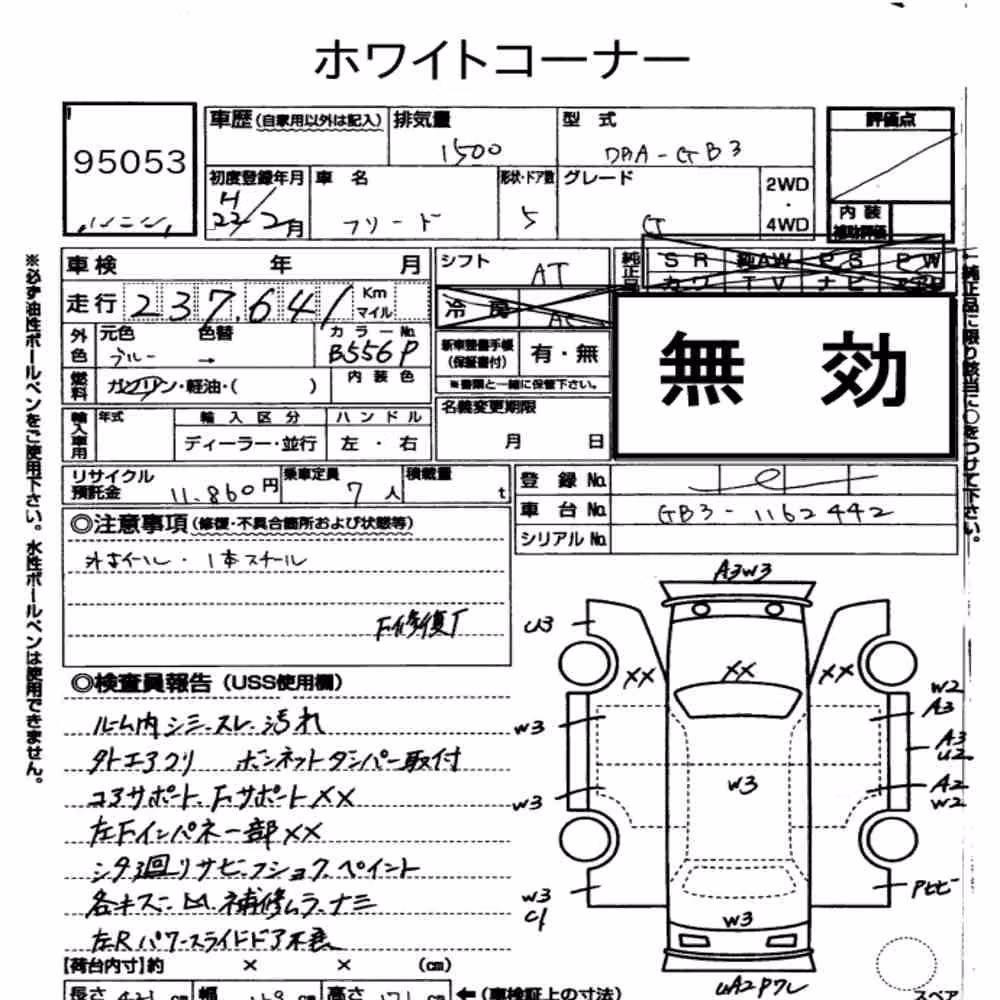 ホワイトコーナー
95053
車歴 (自家用以外は記入) 排気量 型式 評価点
1500 DBA-GB3
初度登録年月 車名 形状・ドア数 グレード 2WD・4WD
H22/2月 フリード 5 G
内装補助評価
車検 年 月 シフト AT 純正品 SR 純AW PS PW
カワ TV ナビ エアB
走行 237,641 Km マイル 冷房 AC
無効
外色 元色 色替 カラーNo.
ブルー → B556P
新車整備手帳 (保証書付) 有・無
※書類と一緒に保管下さい。
燃料 ガソリン・軽油・( ) 内装色
名義変更期限 月 日
輸入車用 年式 輸入区分 ハンドル
ディーラー・並行 左・右
リサイクル預託金 11,860円 乗車定員 7人 積載量 t
登録No.
車台No. GB3-1162442
シリアルNo.
◎注意事項 (修復・不具合箇所および状態等)
外ホイール・1本スチール
F修復了
◎検査員報告 (USS使用欄)
ルーム内シミ・スレ・汚れ
外エアロ ボンネットダンパー取付
コアサポート、FサポートXX
左Fインパネ一部XX
シタ廻リサビ・フショク、ペイント
各キズ・凹、補修ムラ・ナミ
左Rパワースライドドア不良
【荷台内寸】約 × × (cm)
長さ 421 cm 幅 169 cm 高さ 171 cm ←(車検証上の寸法)
※必ず油性ボールペンをご使用下さい。水性ボールペンは使用できません。
←純正品に限り該当に○をつけて下さい。
A3W3
U3
XX XX XX
W2
A3
W3
A3
U2
W3
W3
A2
W2
W3
C1
W3
Pヒビ
UA2Pワレ
スペア